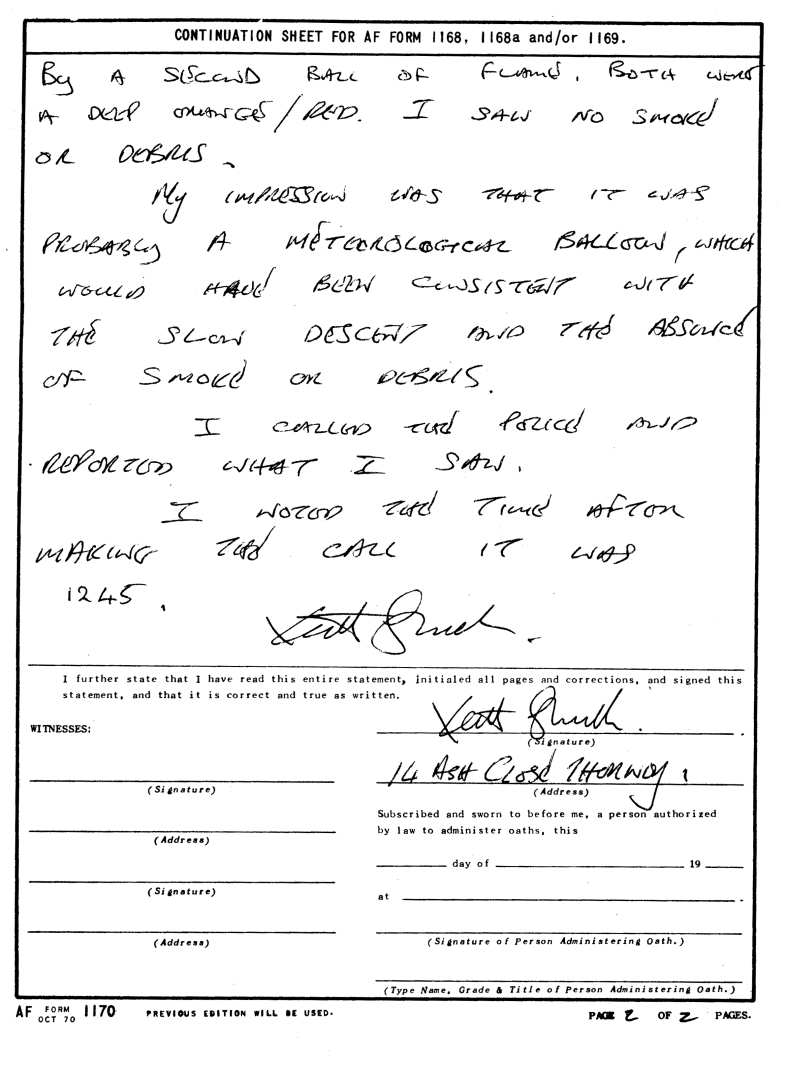 CONTINUATION SHEET FOR AF FORM 1168, 1168a and/or 1169.
By A SECOND BALL OF FLAME. BOTH WERE
A DEEP ORANGE/RED. I SAW NO SMOKE
OR DEBRIS.
My IMPRESSION WAS THAT IT WAS
PROBABLY A METEOROLOGICAL BALLOON, WHICH
WOULD HAVE BEEN CONSISTENT WITH
THE SLOW DESCENT AND THE ABSENCE
OF SMOKE OR DEBRIS.
I CALLED THE POLICE AND
REPORTED WHAT I SAW.
I NOTED THE TIME AFTER
MAKING THE CALL IT WAS
1245.
Keith
I further state that I have read this entire statement, initialed all pages and corrections, and signed this
statement, and that it is correct and true as written.
WITNESSES:
Keith
(Signature)
14 ASH CLOSE THORNEY
(Signature)
(Address)
Subscribed and sworn to before me, a person authorized
by law to administer oaths, this
(Address)
day of 19
(Signature)
at
(Address)
(Signature of Person Administering Oath.)
(Type Name, Grade & Title of Person Administering Oath.)
AF FORM OCT 70 1170 PREVIOUS EDITION WILL BE USED. PAGE 2 OF 2 PAGES.